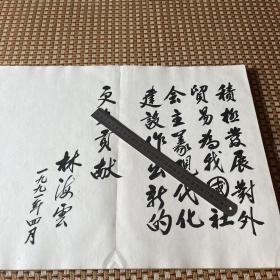 積極發展對外
貿易為我國社
会主義現代化
建設作出新的
更貢献
林海雲
一九年四月